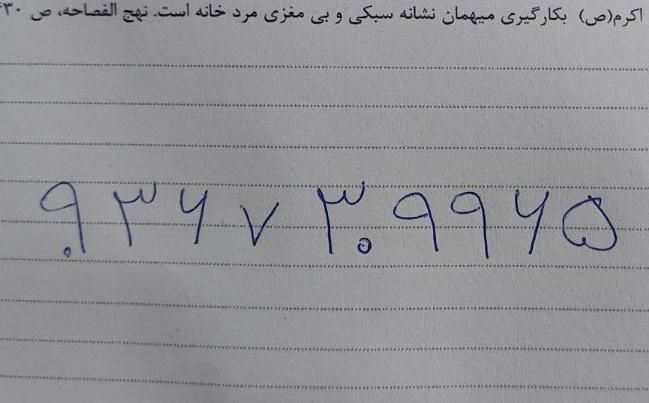 اکرم(ص) بکارگیری میهمان نشانه سبکی و بی مغزی مرد خانه است. نهج الفصاحه، ص ۳۰
۰۹۳۶۷۳۰۹۹۶۵